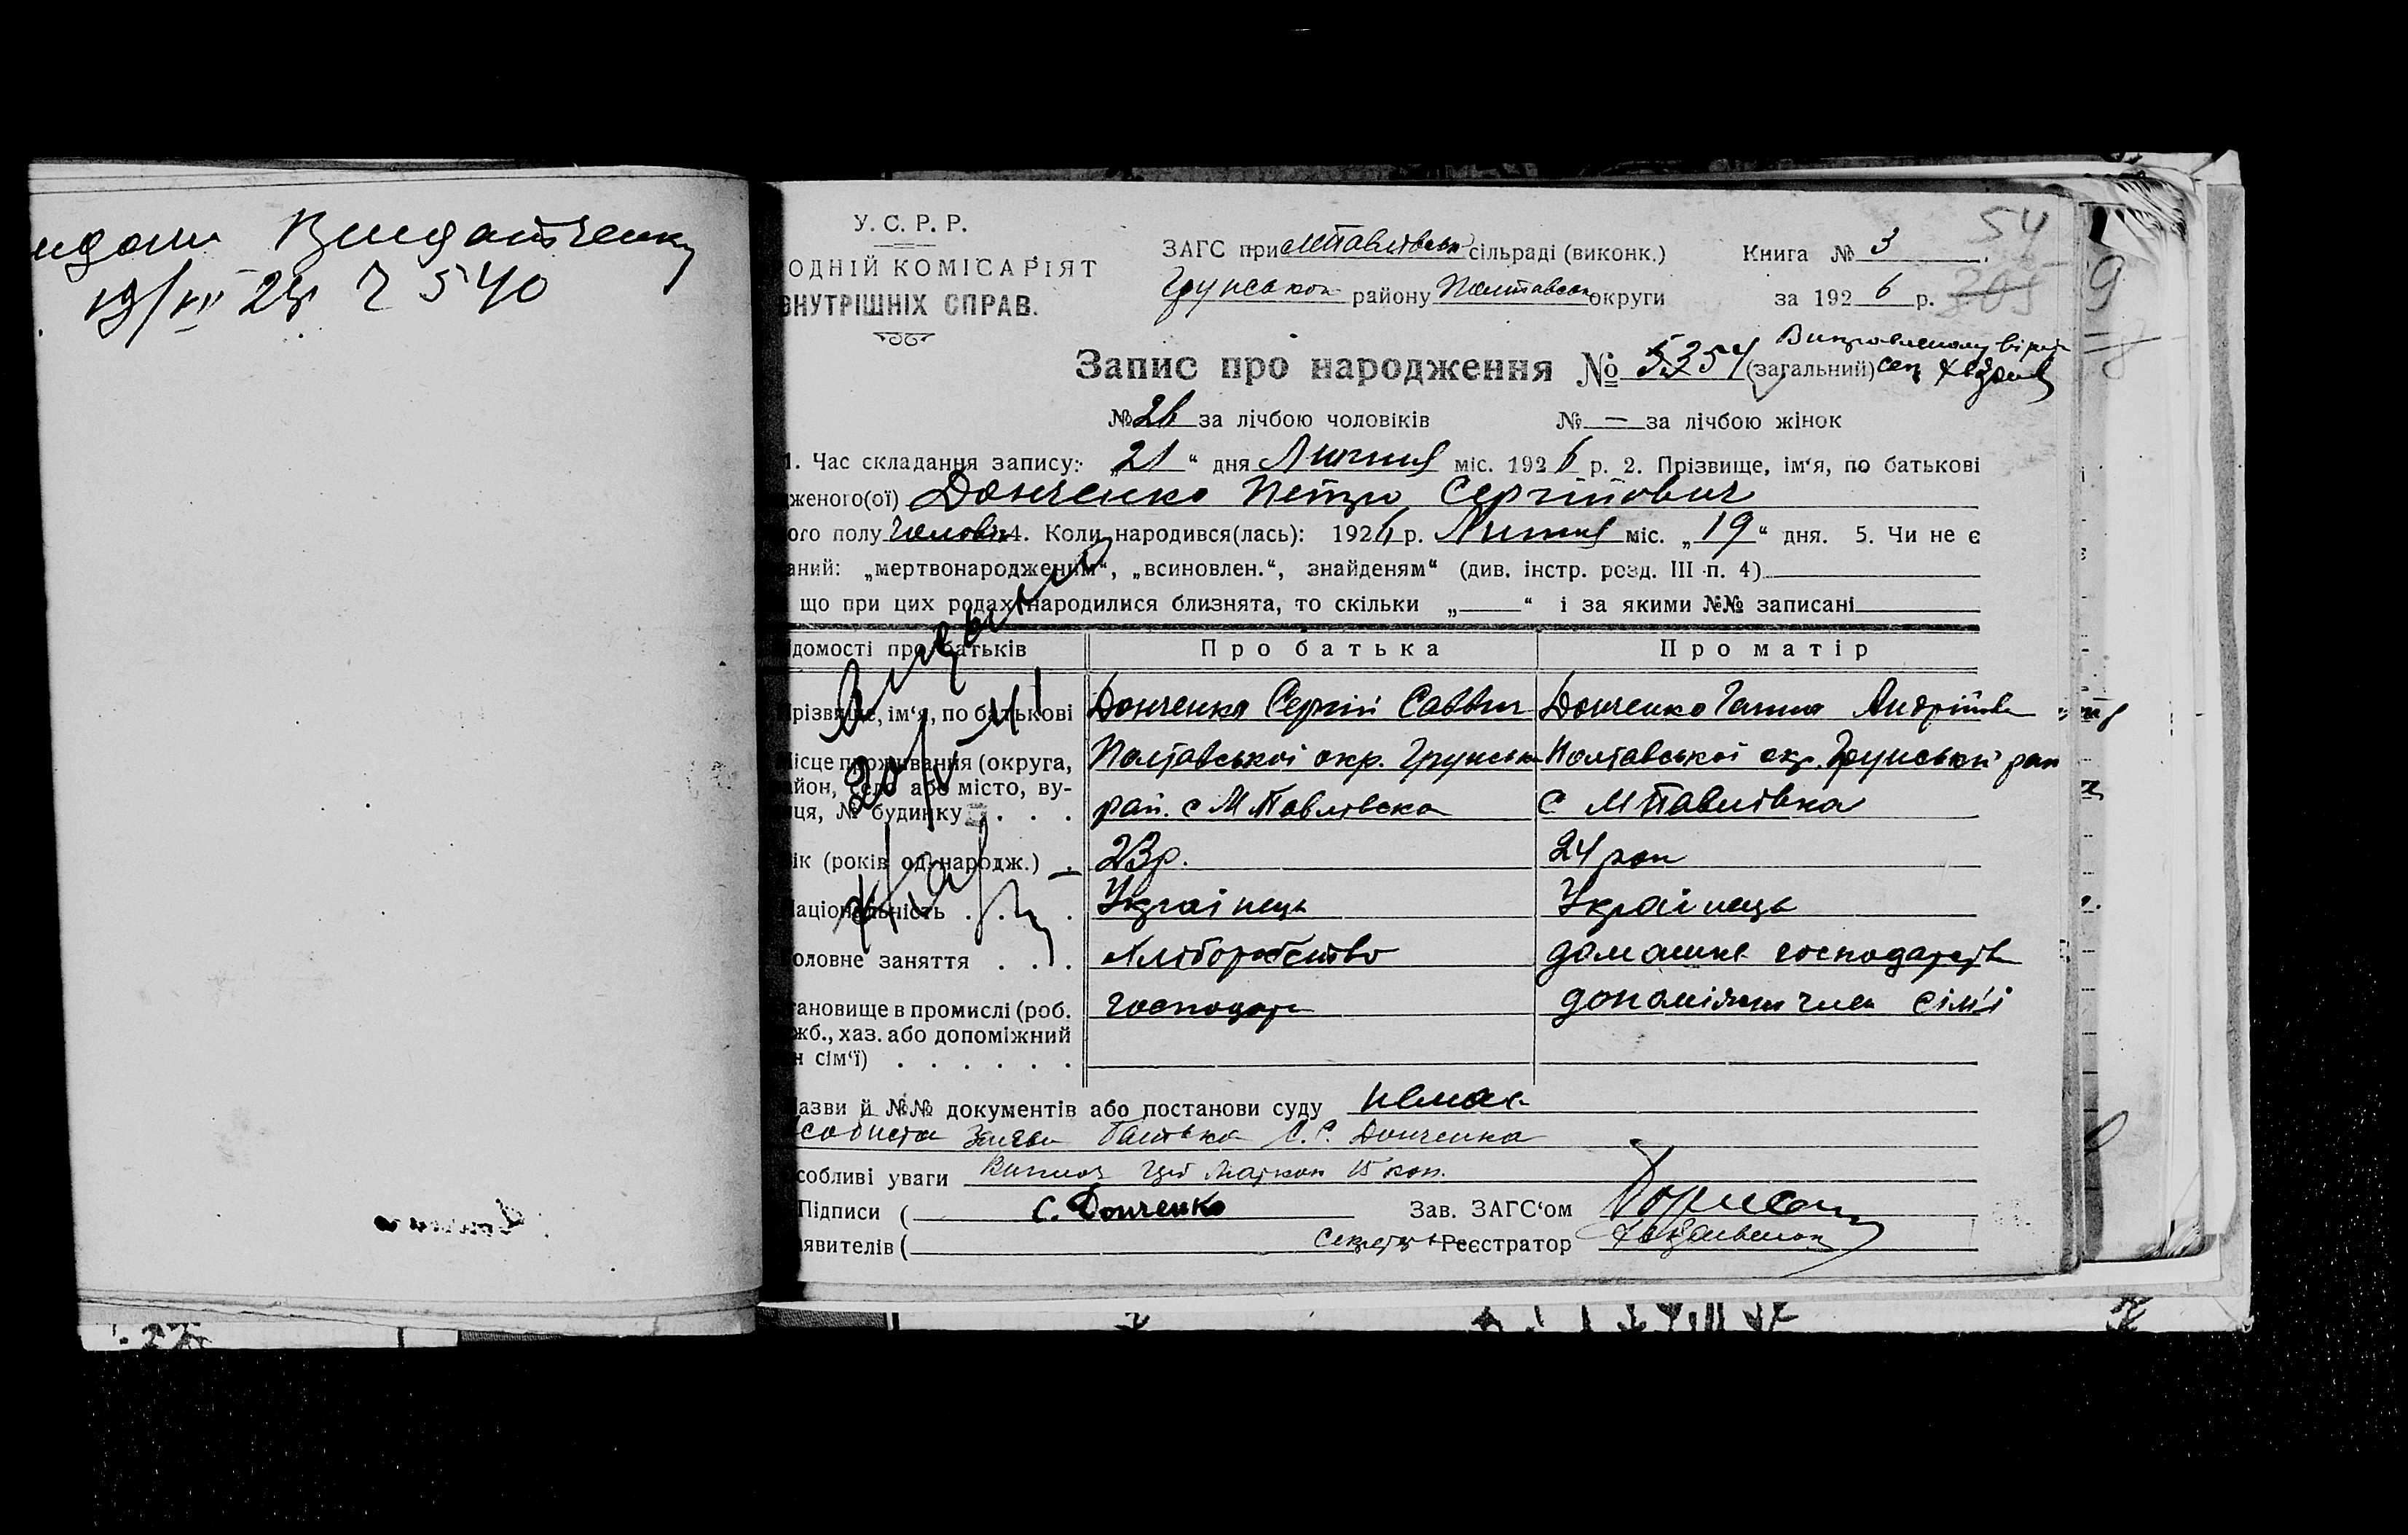 19/VI 24 2540
У. С. Р. Р.
ОДНІЙ КОМІСАРІЯТ
ВНУТРІШНІХ СПРАВ.
ЗАГС при МПавлівськ сільраді (виконк.)
Грунської району Полтавськ округи
Книга № 3
за 1926 р.
54
Запис про народження № 54 (загальний)
Виправленому вірить
№ 26 за лічбою чоловіків № — за лічбою жінок
1. Час складання запису: „21“ дня Липня міс. 1926 р. 2. Прізвище, ім‘я, по батькові
женого(ої) Донченко Петро Сергійович
ого полу Чоловік 4. Коли народився(лась): 1926 р. Липня міс. „19“ дня. 5. Чи не є
аний: „мертвонародженим“, „всиновлен.“, знайденям“ (див. інстр. розд. III п. 4)
що при цих родах народилися близнята, то скільки „ “ і за якими №№ записані
ідомості про батьків Про батька Про матір
різвище, ім‘я, по батькові Донченко Сергій Саввич Донченко Ганна Андріївна
ісце проживання (округа, Полтавської окр. Грунськ Полтавської окр. Грунської рай
айон, село або місто, ву-
ця, № будинку . . . рай. с МПавлівка с МПавлівка
ік (років од народж.) 23р. 24 рок
аціональність . . . Українець Українець
оловне заняття . . . Хліборобство домашнє господарств
тановище в промислі (роб. господар допоміжни член сім'ї
жб., хаз. або допоміжний
н сім‘ї) . . . . . .
азви й №№ документів або постанови суду немає
собиста заява батька С. С. Донченка
собливі уваги 15 коп.
Підписи ( С. Донченко Зав. ЗАГС‘ом
явителів ( Секретар Реєстратор